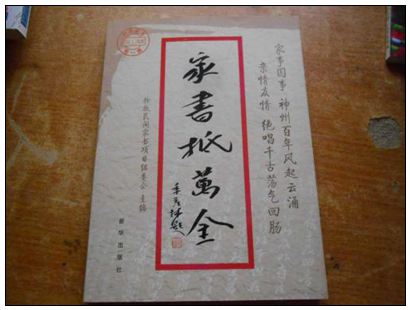 家事国事 神州百年风起云涌
亲情友情 绝唱千古荡气回肠
家書抵萬金
季羡林题
抢救民间家书项目组委会 主编
新华出版社